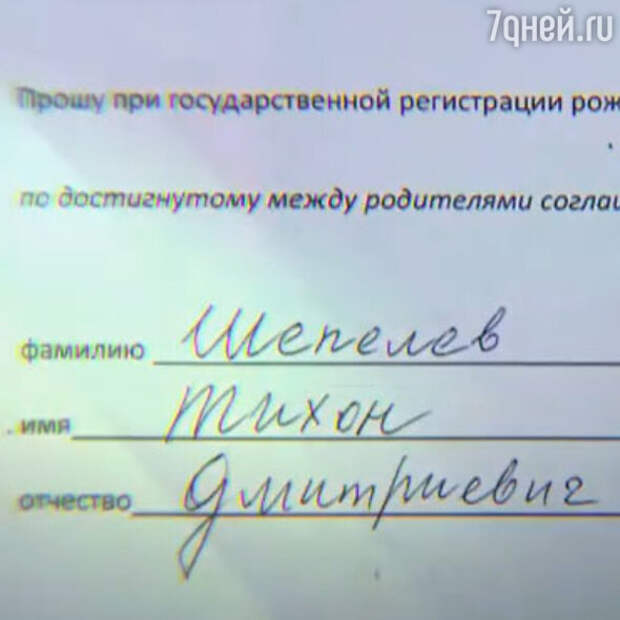 7дней.ru
Прошу при государственной регистрации рож
по достигнутому между родителями соглаш
фамилию Шепелев
имя Тихон
отчество Дмитриевич